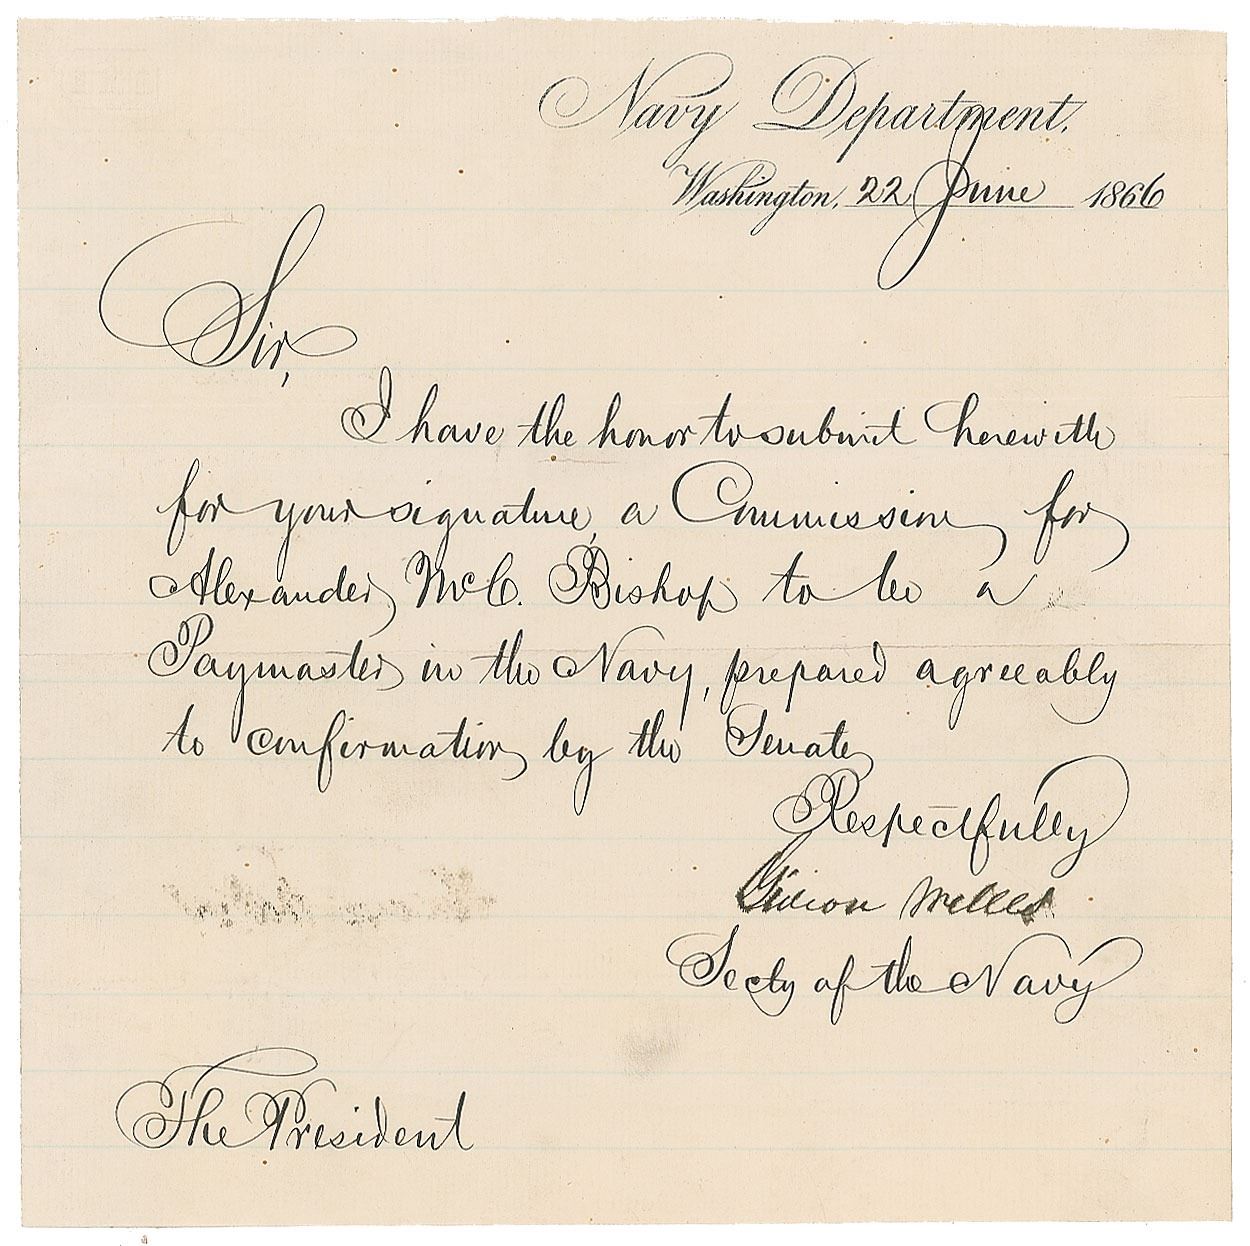 Navy Department.
Washington, 22 June 1866
Sir,
I have the honor to submit herewith
for your signature, a Commission for
Alexander McC. Bishop to be a
Paymaster in the Navy, prepared agreeably
to confirmation by the Senate
Respectfully
Gideon Welles
Secty of the Navy
The President